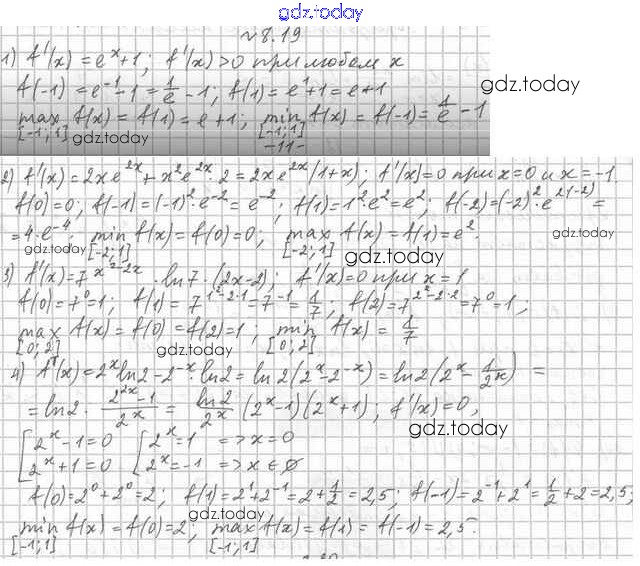 gdz.today
№ 8.19
1) f'(x) = eˣ+1; f'(x)>0 при любом x
gdz.today
f(-1) = e⁻¹-1 = 1/e - 1; f(1) = e¹+1 = e+1
max f(x) = f(1) = e+1; min f(x) = f(-1) = 1/e - 1
[-1;1] gdz.today [-1;1]
-11-
2) f'(x) = 2xe²ˣ + x²e²ˣ·2 = 2xe²ˣ(1+x); f'(x)=0 при x=0 и x=-1
f(0)=0; f(-1)=(-1)²·e⁻²=e⁻²; f(1)=1²·e²=e²; f(-2)=(-2)²·e²⁽⁻²⁾=
gdz.today
=4·e⁻⁴; min f(x) = f(0) = 0; max f(x) = f(1) = e².
gdz.today [-2;1] [-2;1] gdz.today
3) f'(x) = 7^(x²-2x)·ln7·(2x-2); f'(x)=0 при x=1
f(0)=7⁰=1; f(1)=7^(1²-2·1)=7⁻¹=1/7; f(2)=7^(2²-2·2)=7⁰=1;
max f(x) = f(0) = f(2) = 1; min f(x) = 1/7
[0;2] gdz.today [0;2]
4) f'(x) = 2ˣln2-2⁻ˣ·ln2 = ln2(2ˣ-2⁻ˣ) = ln2(2ˣ - 1/2ˣ) =
= ln2 · (2²ˣ-1)/2ˣ = ln2/2ˣ (2ˣ-1)(2ˣ+1); f'(x)=0,
gdz.today
[2ˣ-1=0 [2ˣ=1 => x=0
2ˣ+1=0 2ˣ=-1 => x∈∅
f(0)=2⁰+2⁰=2; f(1)=2¹+2⁻¹=2+1/2=2,5; f(-1)=2⁻¹+2¹=1/2+2=2,5;
gdz.today
min f(x) = f(0) = 2; max f(x) = f(1) = f(-1) = 2,5.
[-1;1] [-1;1]